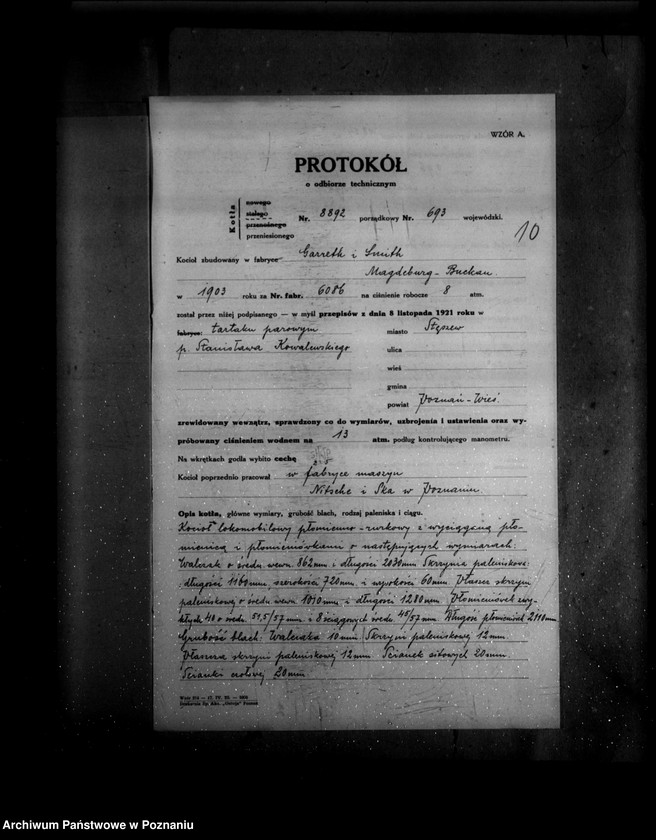 WZÓR A.
PROTOKÓŁ
o odbiorze technicznym
Kotła
nowego
stałego
przenośnego
przeniesionego
Nr. 8892 porządkowy Nr. 693 wojewódzki.
10
Kocioł zbudowany w fabryce Garreth i Smith
Magdeburg-Buckau.
w 1903 roku za Nr. fabr. 6086 na ciśnienie robocze 8 atm.
został przez niżej podpisanego — w myśl przepisów z dnia 8 listopada 1921 roku w
fabryce: tartaku parowym
p. Stanisława Kowalewskiego
miasto Stęszew
ulica
wieś
gmina
powiat Poznań-Wieś
zrewidowany wewnątrz, sprawdzony co do wymiarów, uzbrojenia i ustawienia oraz wy-
próbowany ciśnieniem wodnem na 13 atm. podług kontrolującego manometru.
Na wkrętkach godła wybito cechę
Kocioł poprzednio pracował w fabryce maszyn
Nitsche i Ska w Poznaniu.
Opis kotła, główne wymiary, grubość blach, rodzaj paleniska i ciągu.
Kocioł lokomobilowy płomienno-rurkowy z wyciąganą pło-
mienicą i płomieniówkami o następujących wymiarach:
Walczak o średn. wewn. 862mm i długości 2030mm Skrzynia paleniskowa
długości 1160mm, szerokości 720mm i wysokości 60mm. Płaszcz skrzyni
paleniskowej o średn. wewn. 1010mm i długości 1280mm. Płomieniówek zwy-
kłych 40 o średn. 51,5/57mm i 8 ściągowych średn. 45/57mm Długość płomieniówek 2110mm
Grubość blach: Walczaka 10mm Skrzyni paleniskowej 12mm.
Płaszcza skrzyni paleniskowej 12mm. Ścianek sitowych 20mm.
Ścianki czołowej 20mm.
Archiwum Państwowe w Poznaniu